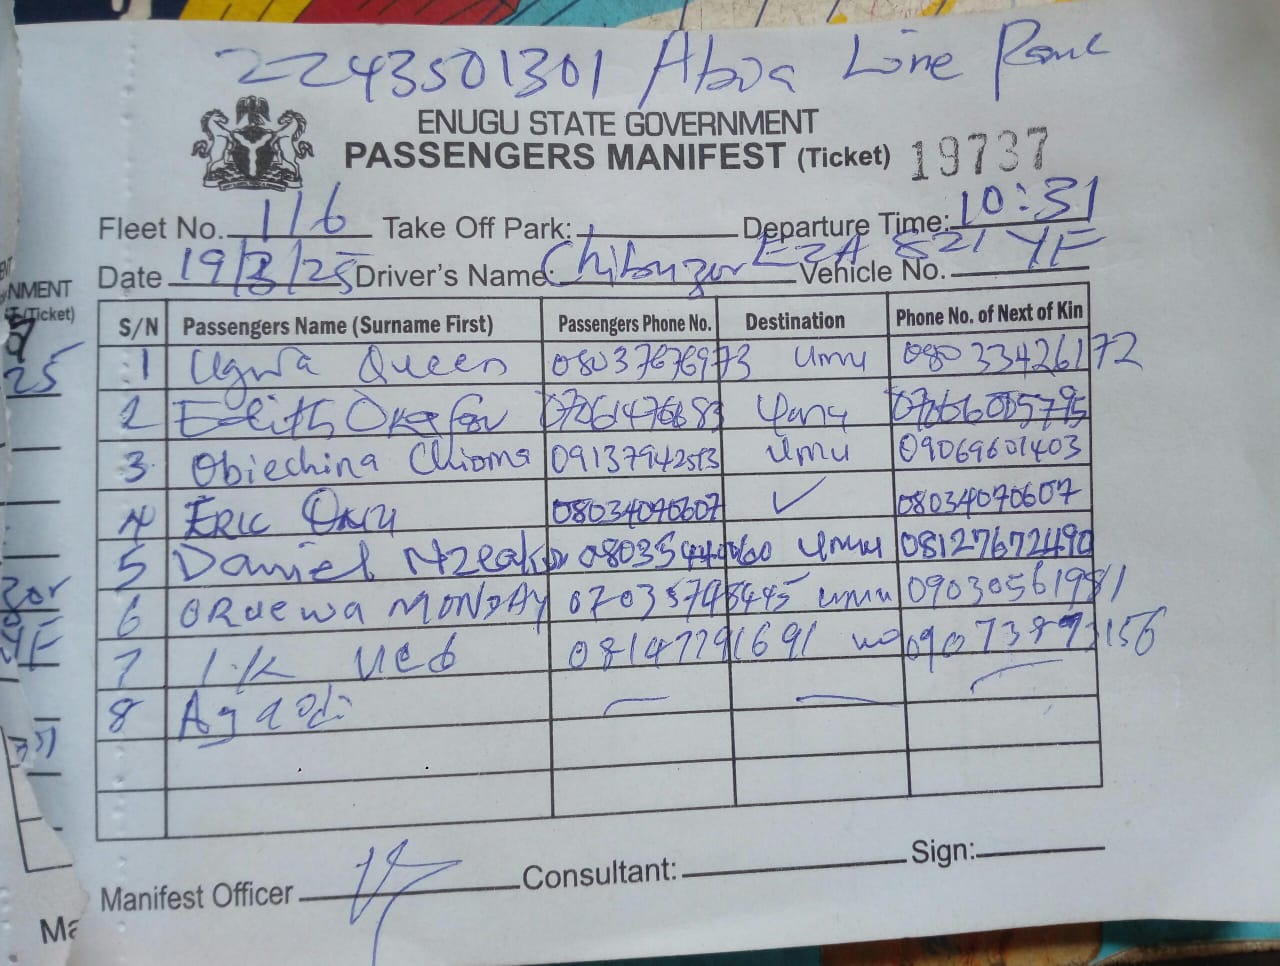 2243501301 Abia Line Park
ENUGU STATE GOVERNMENT
PASSENGERS MANIFEST (Ticket) 19737
Fleet No. 116 Take Off Park: Departure Time: 10:31
Date 19/3/25 Driver's Name: Chibuzor Vehicle No. EZA 821 YF
S/N Passengers Name (Surname First) Passengers Phone No. Destination Phone No. of Next of Kin
1 Ugwu Queen 08037676973 Umu 08033426172
2 Edith Okafor
3 Obiechina Chioma Umu 09069601403
4 ERIC 08034070607 ✓ 08034070607
5 Daniel Umu 08127672490
6 ORUEWA MONDAY 07035748445 umu 09030561981
7 I.K 08147791691 09073893156
8
Manifest Officer Consultant: Sign:
NMENT
(Ticket)
25
zor
YF
Ma